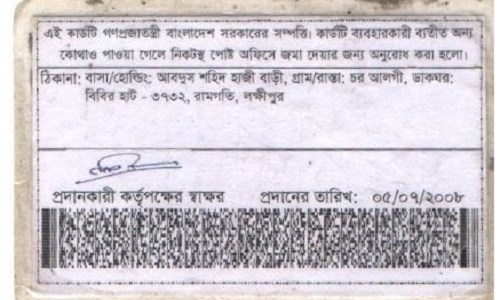 এই কার্ডটি গণপ্রজাতন্ত্রী বাংলাদেশ সরকারের সম্পত্তি। কার্ডটি ব্যবহারকারী ব্যতীত অন্য
কোথাও পাওয়া গেলে নিকটস্থ পোষ্ট অফিসে জমা দেয়ার জন্য অনুরোধ করা হলো।
ঠিকানা: বাসা/হোল্ডিং: আবদুস শহিদ হাজী বাড়ী, গ্রাম/রাস্তা: চর আলগী, ডাকঘর:
বিবির হাট - ৩৭৩২, রামগতি, লক্ষীপুর
প্রদানকারী কর্তৃপক্ষের স্বাক্ষর প্রদানের তারিখ: ০৫/০৭/২০০৮